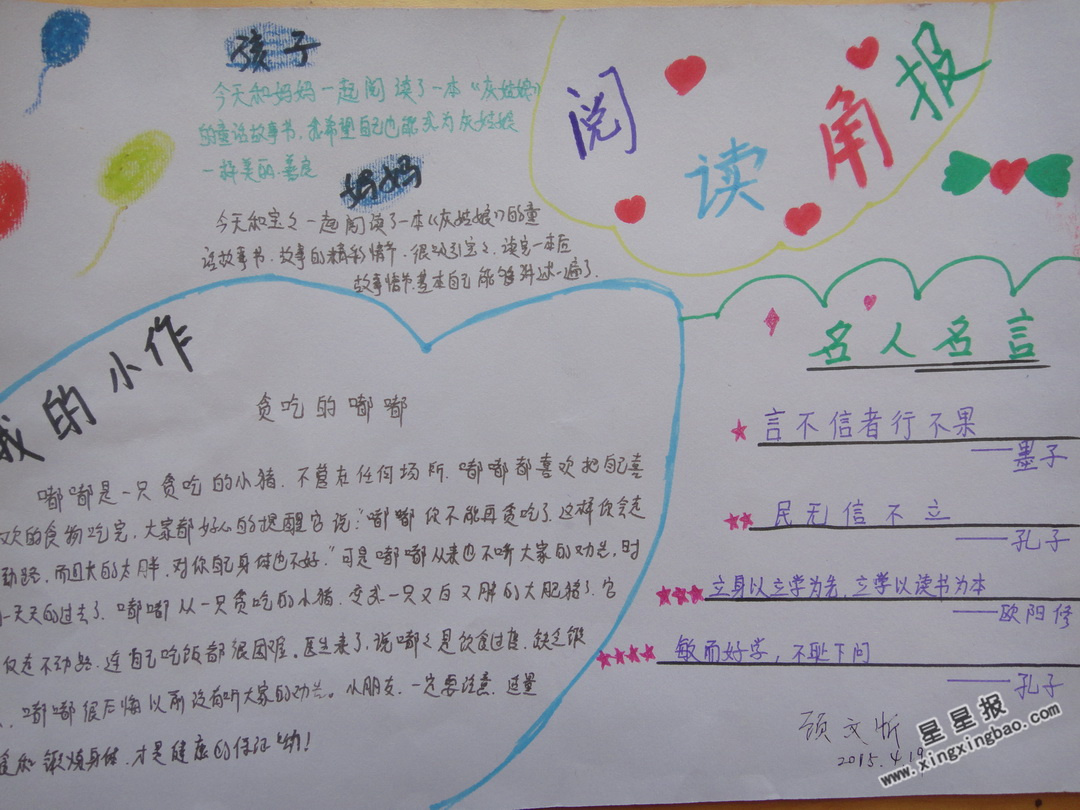 阅读角报
孩子
今天和妈妈一起阅读了一本《灰姑娘》
的童话故事书,我希望自己也能成为灰姑娘
一样美丽.善良
妈妈
今天和宝々一起阅读了一本《灰姑娘》的童
话故事书,故事的精彩情节,很吸引宝々,读完一本后
故事情节基本自己能够讲述一遍了.
我的小作
贪吃的嘟嘟
嘟嘟是一只贪吃的小猪,不管在任何场所,嘟嘟都喜欢把自己喜
欢的食物吃完,大家都好心的提醒它说:“嘟嘟你不能再贪吃了,这样你会走
动路,而且大的太胖,对你自己身体也不好.”可是嘟嘟从来也不听大家的劝告,时
一天天的过去了,嘟嘟从一只贪吃的小猪,变成一只又白又胖的大肥猪了,它
仅走不动路,连自己吃饭都很困难,医生来了,说嘟々是饮食过度,缺乏锻
,嘟嘟很后悔以前没有听大家的劝告。小朋友,一定要注意,适量
和锻炼身体,才是健康的保证哟!
名人名言
言不信者行不果
——墨子
民无信不立
——孔子
立身以立学为先,立学以读书为本
——欧阳修
敏而好学,不耻下问
——孔子
顾文忻
2015.4.19
星星报
www.xingxingbao.com